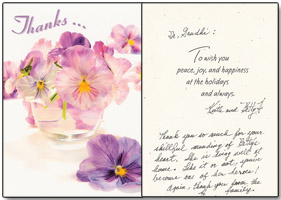 Thanks...
Dr. Gradhi:
To wish you
peace, joy, and happiness
at the holidays
and always.
Keith and Betty F
Thank you so much for your
skillful mending of Bettys
heart. She is doing well at
home. Like it or not, you've
become one of her heros!
Again, thank you from the
F family.